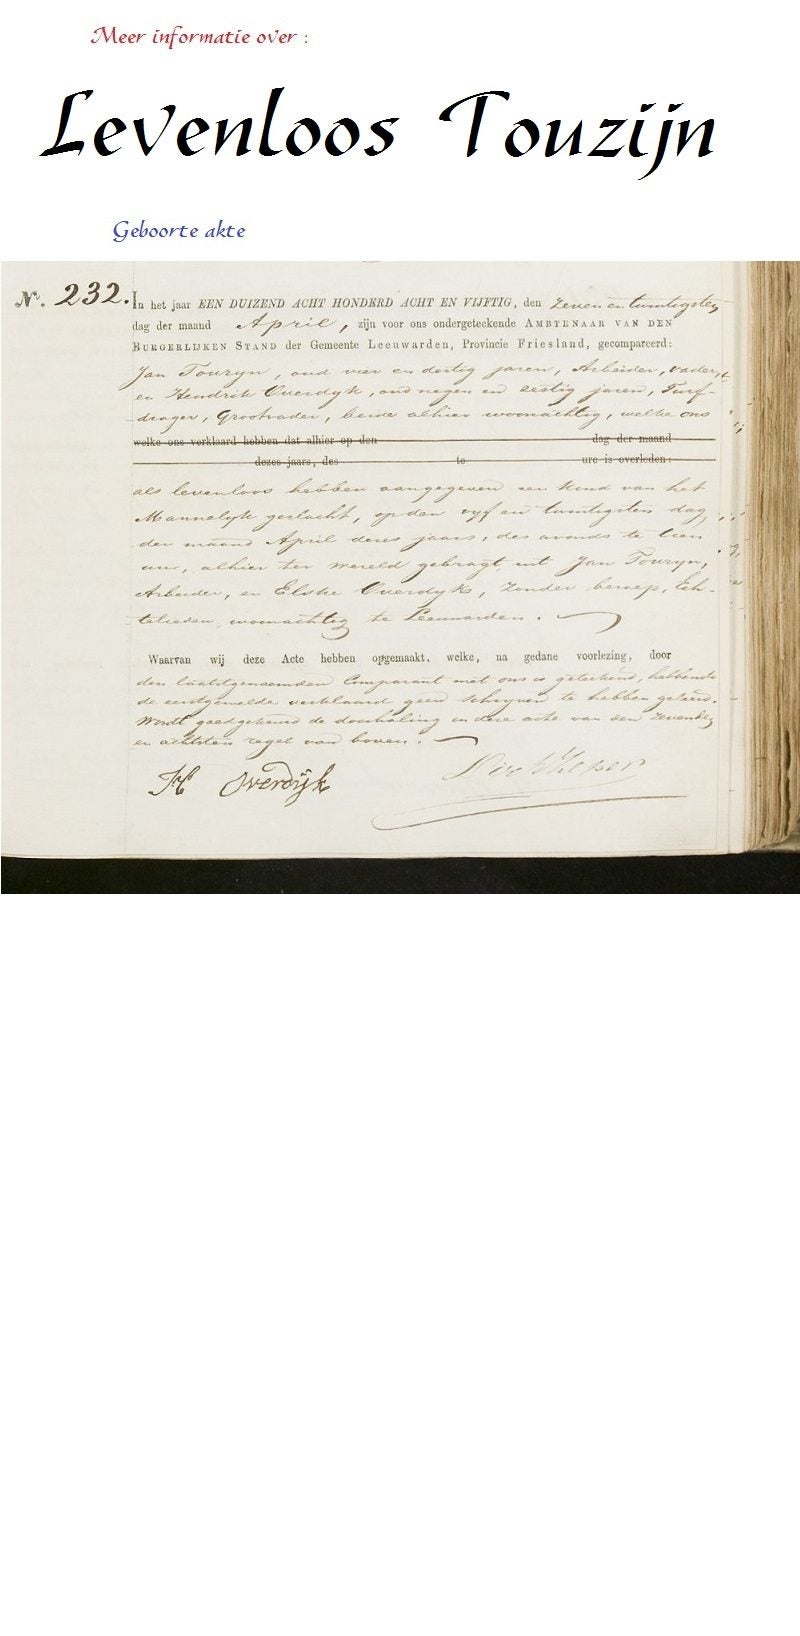 Meer informatie over :
Levenloos Touzijn
Geboorte akte
No. 232. In het jaar EEN DUIZEND ACHT HONDERD ACHT EN VIJFTIG, den zeven en twintigsten
dag der maand April, zijn voor ons ondergeteekende AMBTENAAR VAN DEN
BURGERLIJKEN STAND der Gemeente Leeuwarden, Provincie Friesland, gecompareerd:
Jan Touzyn, oud vier en dertig jaren, Arbeider, vader,
en Hendrik Overdyk, oud negen en zestig jaren, Turf-
drager, Grootvader, beide alhier woonachtig, welke ons
welke ons verklaard hebben dat alhier op den dag der maand
dezes jaars, des te ure is overleden:
als levenloos hebben aangegeven een kind van het
Mannelyk geslacht, op den vyf en twintigsten dag
der maand April dezes jaars, des avonds te tien
ure, alhier ter wereld gebragt uit Jan Touzyn,
Arbeider, en Elske Overdyk, zonder beroep, Ech-
telieden woonachtig te Leeuwarden.
Waarvan wij deze Acte hebben opgemaakt, welke, na gedane voorlezing, door
den laatstgenoemden Comparant met ons is geteekend, hebbende
de eerstgemelde verklaard geen schryven te hebben geleerd.
Wordt goedgekeurd de doorhaling in deze acte van den zevenden
en achtsten regel van boven.
H Overdijk